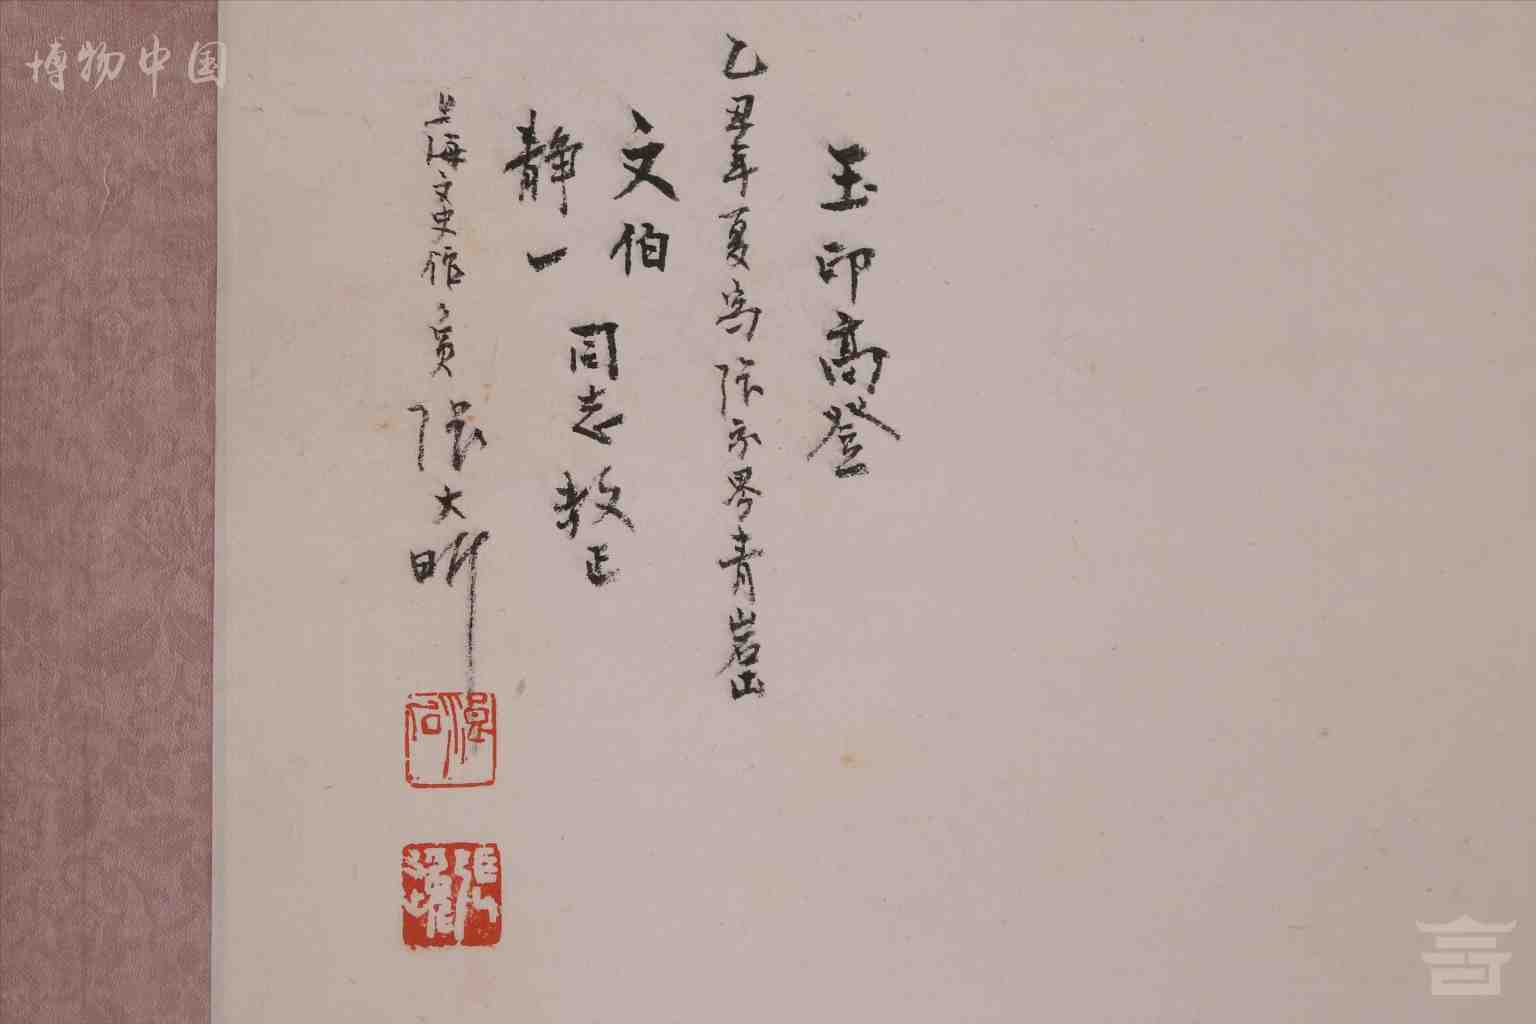 博物中国
玉印高登
乙丑年夏写陈家琴青岩山
文伯
静一
同志教正
上海文史馆员张大昕